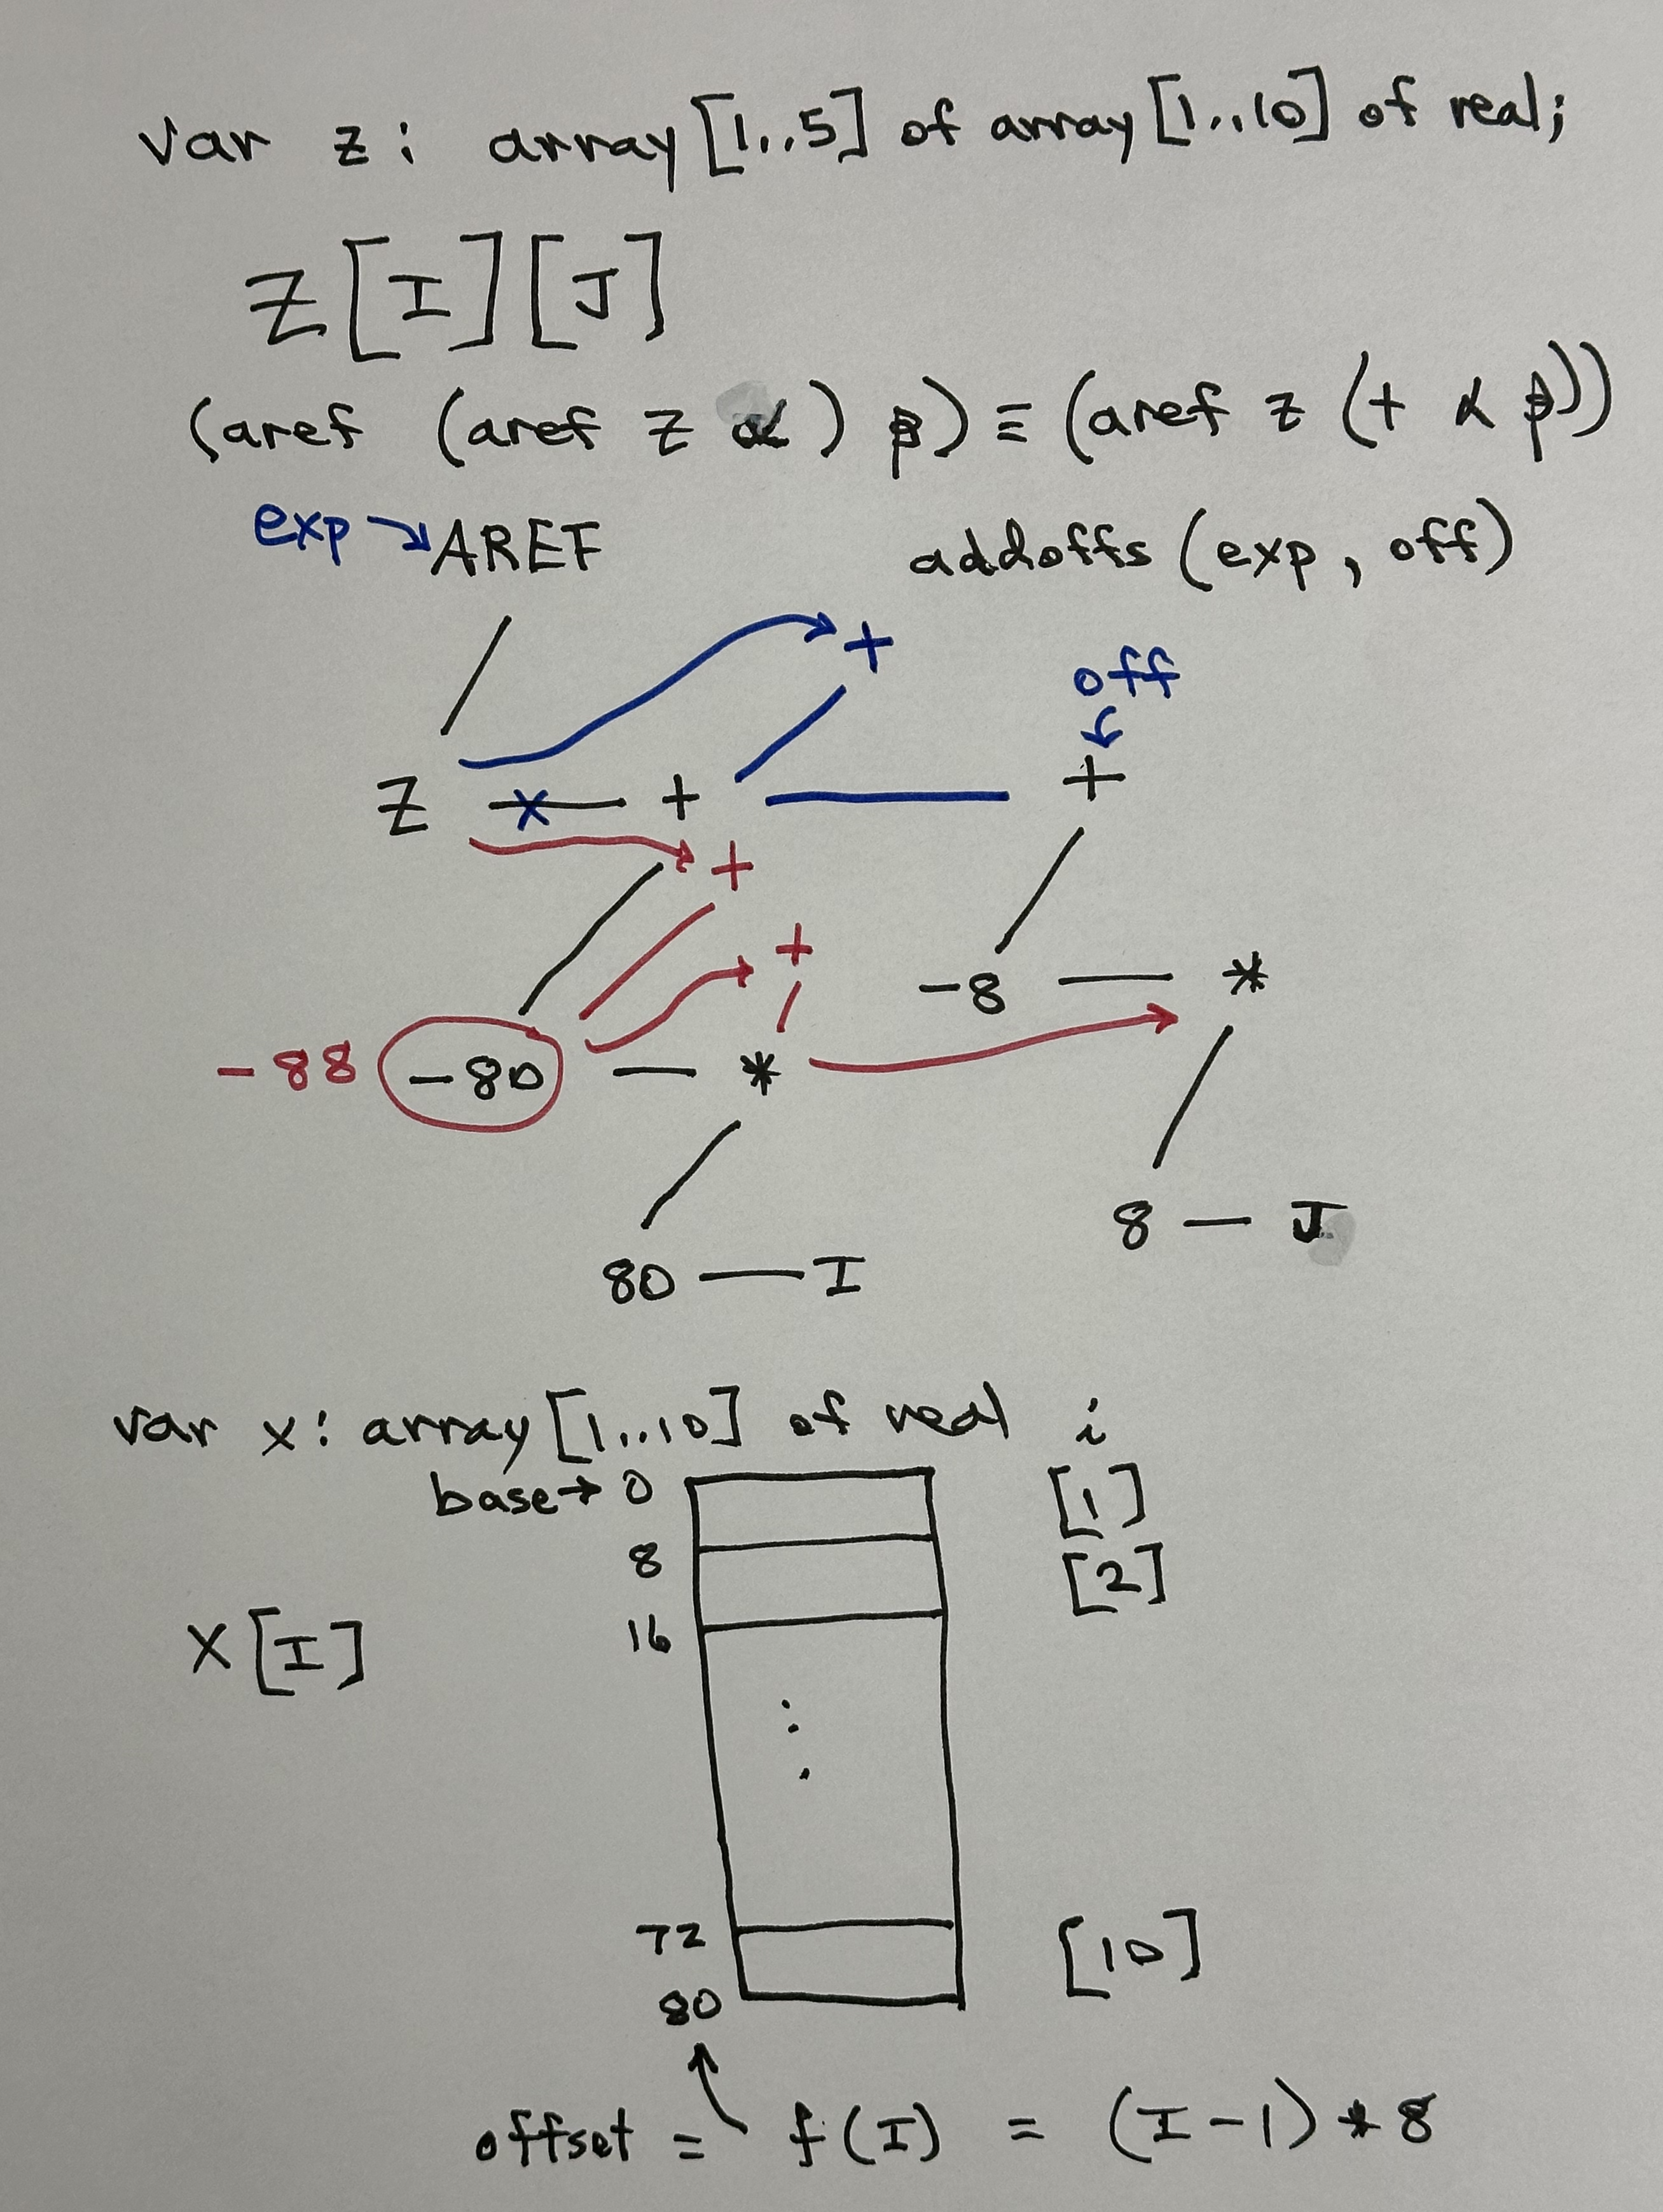 var z: array[1..5] of array[1..10] of real;
Z[I][J]
(aref (aref z α) β) ≡ (aref z (+ α β))
exp → AREF addoffs(exp, off)
+
off
Z x + +
+
+
-8 *
-88 -80 *
8 J
80 I
var x: array[1..10] of real i
base → 0 [1]
8 [2]
16
X[I]
72 [10]
80
offset = f(I) = (I-1)*8